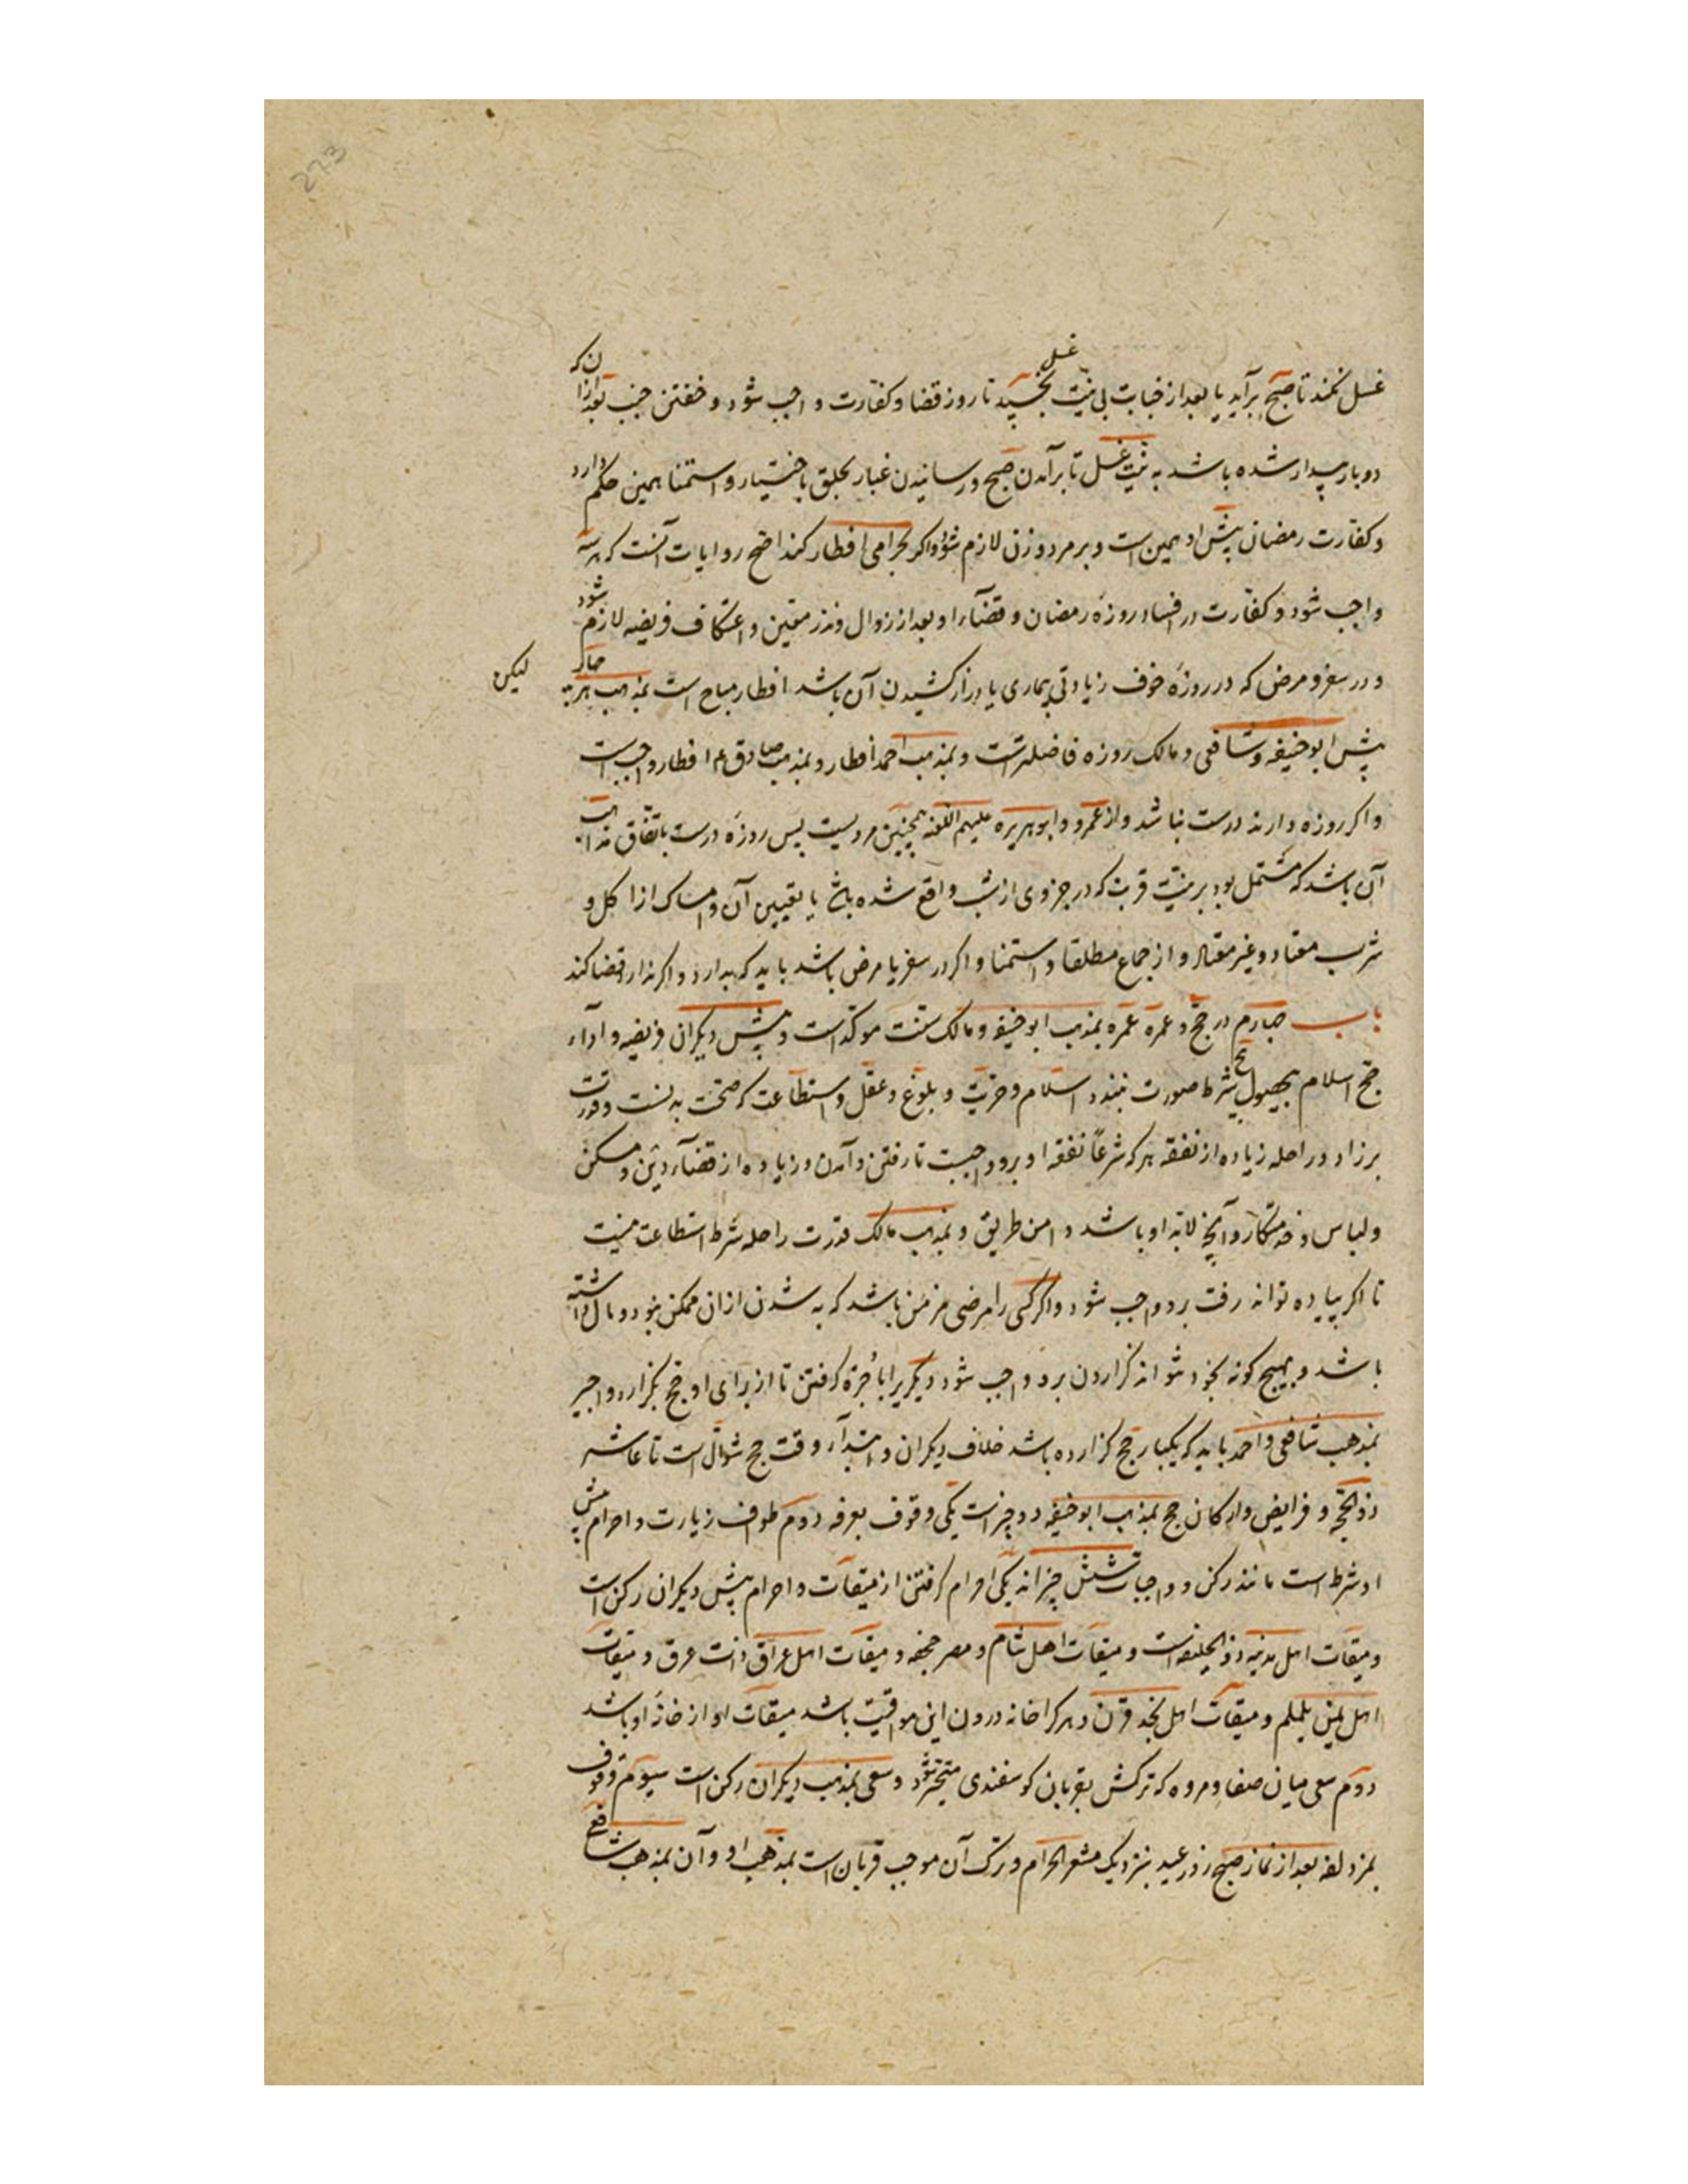 غسل نکند تا صبح برآید یا بعد از جنابت بی نیت غسل بخسپد تا روز قضا و کفارت واجب شود و خفتن جنب بعد ازان که
دوبار بیدار شده باشد به نیت غسل تا برآمدن صبح و رسانیدن غبار بحلق باختیار و استمنا همین حکم دارد
و کفارت رمضان پیش او همین است و بر مرد و زن لازم شود و اکر بحرامی افطار کند اصح روایات آنست که هر سه
واجب شود و کفارت در افساد روزه رمضان و قضاء او بعد از زوال و نذر معین و اعتکاف فریضه لازم شود
و در سفر و مرض که در روزه خوف زیادتی بیماری یا دراز کشیدن آن باشد افطار مباح است بمذهب هر چهار
لیکن
پیش ابو حنیفه و شافعی و مالک روزه فاضلتر است و بمذهب احمد افطار و بمذهب صادق ع افطار واجبست
و اکر روزه دارند درست نباشد و از عمرو و ابو هریره علیهم اللعنه همچنین مرویست پس روزه درست باتفاق مذاهب
آن باشد که مشتمل بود بر نیت قربت که در جزوی از شب واقع شده باشد با تعیین آن و امساک از اکل و
شرب معتاد و غیر معتاد و از جماع مطلقا و استمنا و اکر در سفر یا مرض باشد باید که ندارد و اکر ندارد قضا کند
باب چهارم در حج و عمره عمره بمذهب ابو حنیفه و مالک سنت موکد است و پیش دیکران فریضه و اداء
حج اسلام بحصول پنج شرط صورت بندد اسلام و حریت و بلوغ و عقل و استطاعت که صحت بدنست و قدرت
بر زاد و راحله زیاده از نفقه هر که شرعاً نفقه او برو واجبست تا رفتن و آمدن و زیاده از قضاء دین و مسکن
و لباس و خدمتکار و آنچه لابد او باشد و امن طریق و بمذهب مالک قدرت راحله شرط استطاعت نیست
تا اکر پیاده تواند رفت برو واجب شود و اکر کسی را مرضی مزمن باشد که به شدن ازان ممکن نبود و مال داشته
باشد و بهیچ کونه بخود نتواند کزاردن برو واجب شود دیکریرا باجرة کرفتن تا از برای او حج بکزارد و اجیر
بمذهب شافعی و احمد باید که یکبار حج کزارده باشد خلاف دیکران و ابتداء وقت حج شوال است تا عاشر
ذوالحجه و فرایض و ارکان حج بمذهب ابو حنیفه دو چیز است یکی وقوف بعرفه دوم طواف زیارت و احرام پیش
او شرط است مانند رکن و واجبات شش چیز اند یکی احرام کرفتن از میقات و احرام پیش دیکران رکن است
و میقات اهل مدینه ذو الحلیفه است و میقات اهل شام و مصر جحفه و میقات اهل عراق ذات عرق و میقات
اهل یمن یلملم و میقات اهل نجد قرن و هر کرا خانه درون این مواقیت باشد میقات او از خانه او باشد
دوم سعی میان صفا و مروه که ترکش بقربان کوسفندی منجبر شود و سعی بمذهب دیکران رکن است سیوم وقوف
بمزدلفه بعد از نماز صبح روز عید بنزدیک مشعر الحرام و ترک آن موجب قربان است بمذهب او و آن بمذهب شافعی